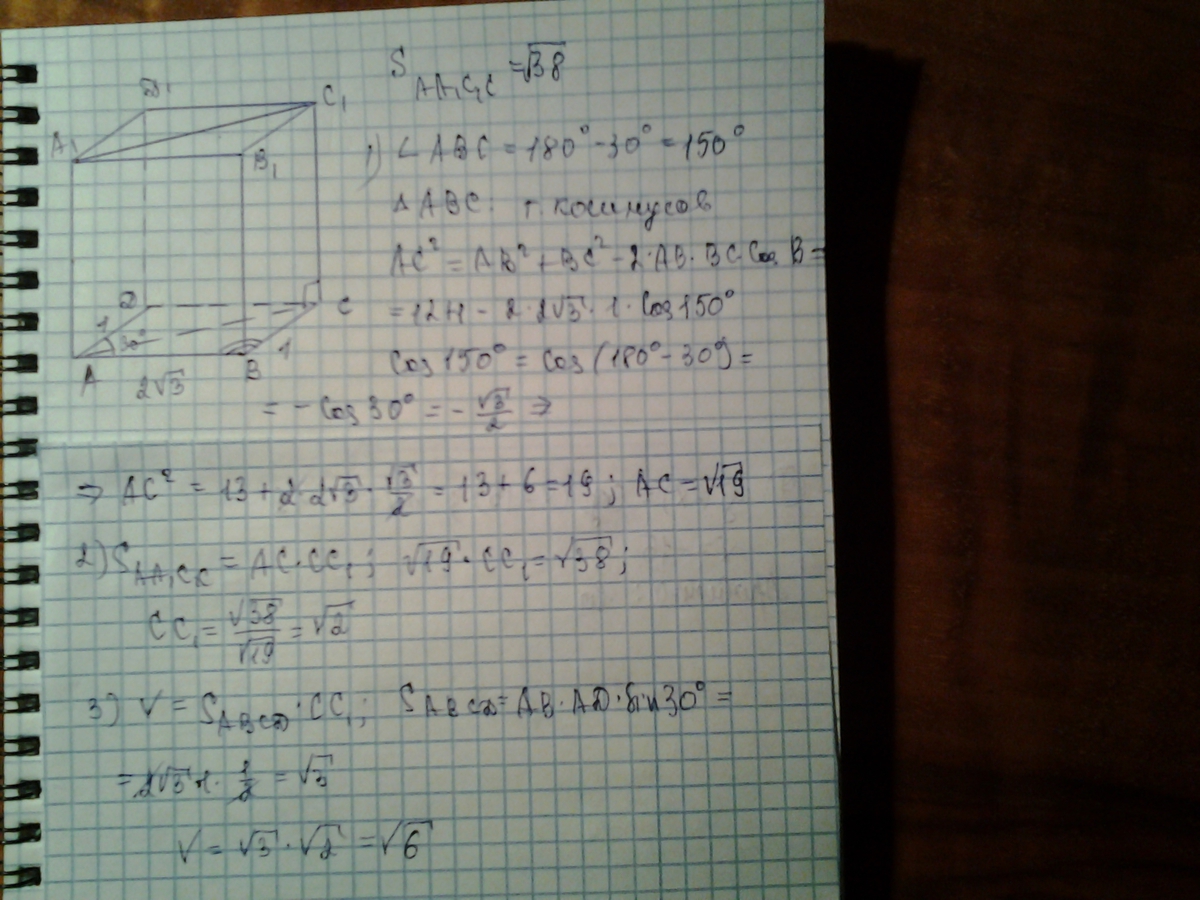 S AA₁C₁C = √38
D₁
C₁
A₁
B₁
D
C
1
30°
1
A
B
2√3
1) ∠ABC = 180° - 30° = 150°
△ABC: т. косинусов
AC² = AB² + BC² - 2·AB·BC·Cos B =
= 12+1 - 2·2√3·1·Cos150°
Cos150° = Cos(180° - 30°) =
= - Cos30° = - √3/2 ⇒
⇒ AC² = 13 + 2·2√3·√3/2 = 13 + 6 = 19; AC = √19
2) S AA₁C₁C = AC·CC₁; √19·CC₁ = √38;
CC₁ = √38/√19 = √2
3) V = S ABCD·CC₁; S ABCD = AB·AD·Sin30° =
= 2√3·1·1/2 = √3
V = √3·√2 = √6